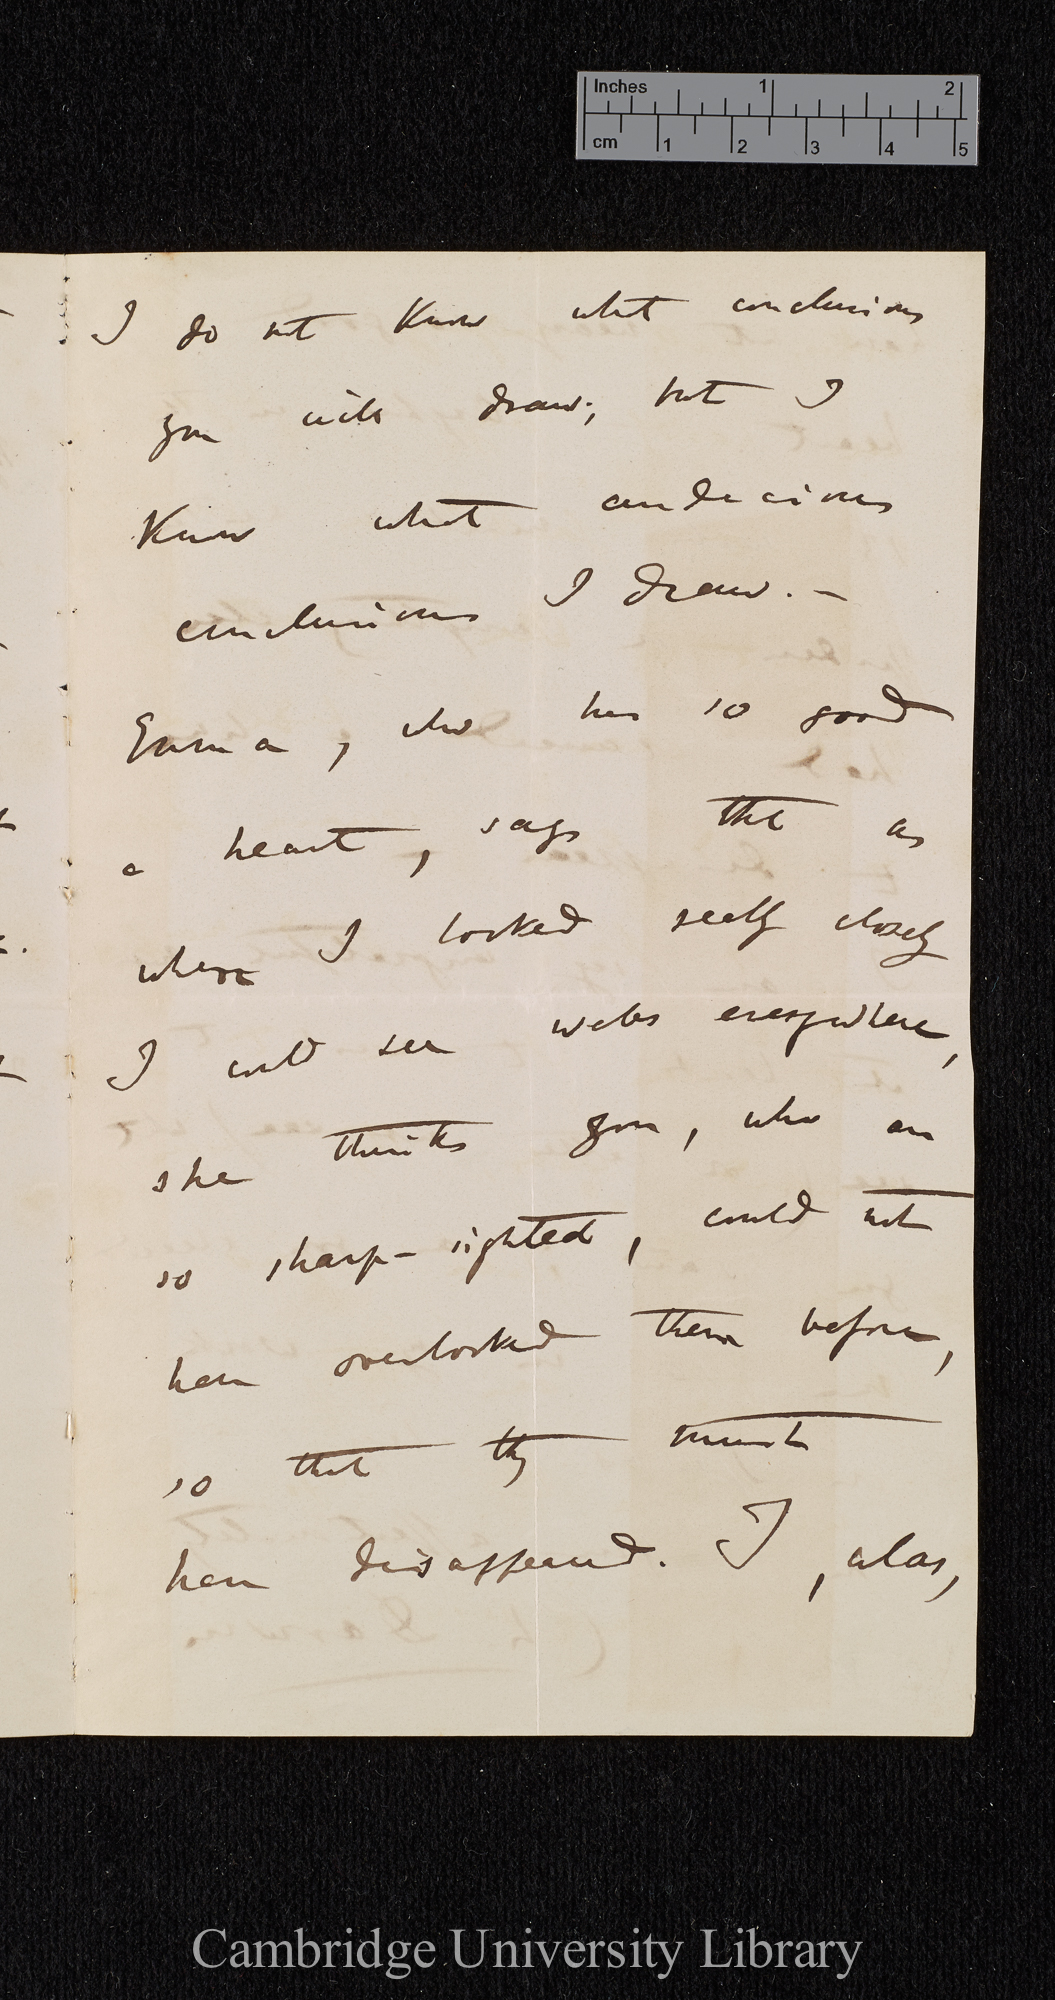 Inches 1 2
cm 1 2 3 4 5
I do not know what conclusions
you will draw; but I
know what audacious
conclusions I draw. —
Emma, who has so good
a heart, says that as
where I looked really closely
I could see webs everywhere,
she thinks you, who are
so sharp-sighted, could not
have overlooked them before,
so that they must
have disappeared. I, alas,
Cambridge University Library